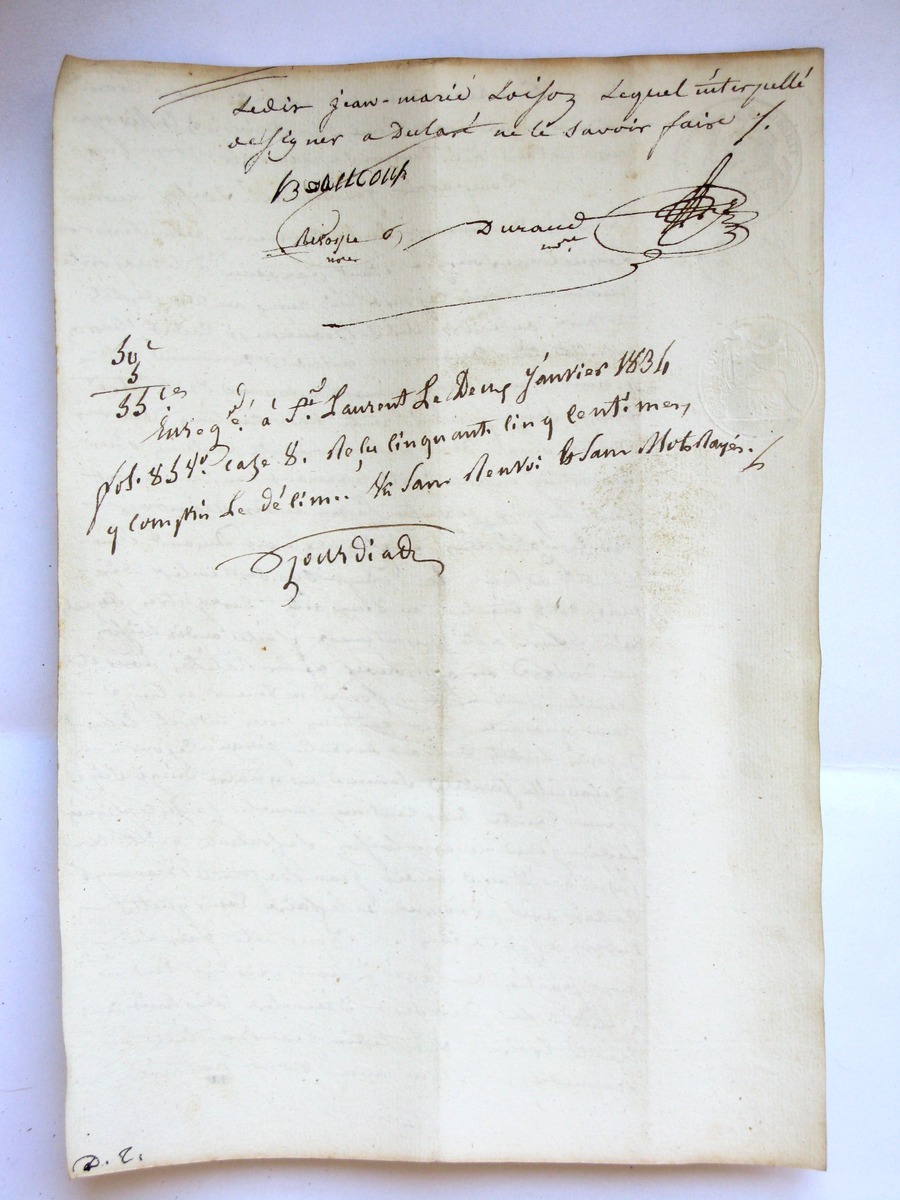 Ledit jean-marie Loison Lequel interpellé
de signer a Déclaré ne le savoir faire /.
Beaucoup
Durand
nore
noire
50c
5
55 ces
Enregré. à St. Laurent Le Deux Janvier 1834
fol. 85 Vo. Case 8. Reçu Cinquante Cinq Centimes,
y Compris Le décime. Sans Renvoi & Sans Mots Rayés.
Gourdiat
D. T.